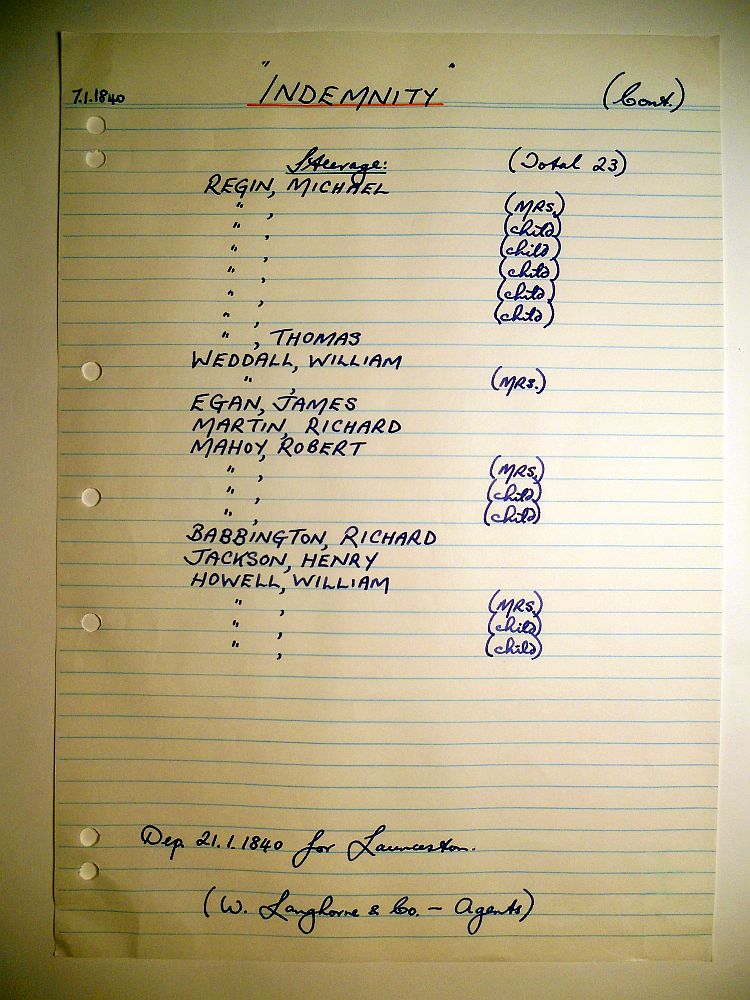 7.1.1840 "INDEMNITY" (Cont.)
Steerage: (Total 23)
REGIN, MICHAEL
" , (MRS.)
" , (child)
" , (child)
" , (child)
" , (child)
" , (child)
" , THOMAS
WEDDALL, WILLIAM
" , (MRS.)
EGAN, JAMES
MARTIN, RICHARD
MAHOY, ROBERT
" , (MRS.)
" , (child)
" , (child)
BABBINGTON, RICHARD
JACKSON, HENRY
HOWELL, WILLIAM
" , (MRS.)
" , (child)
" , (child)
Dep. 21.1.1840 for Launceston.
(W. Langhorne & Co. - Agents)